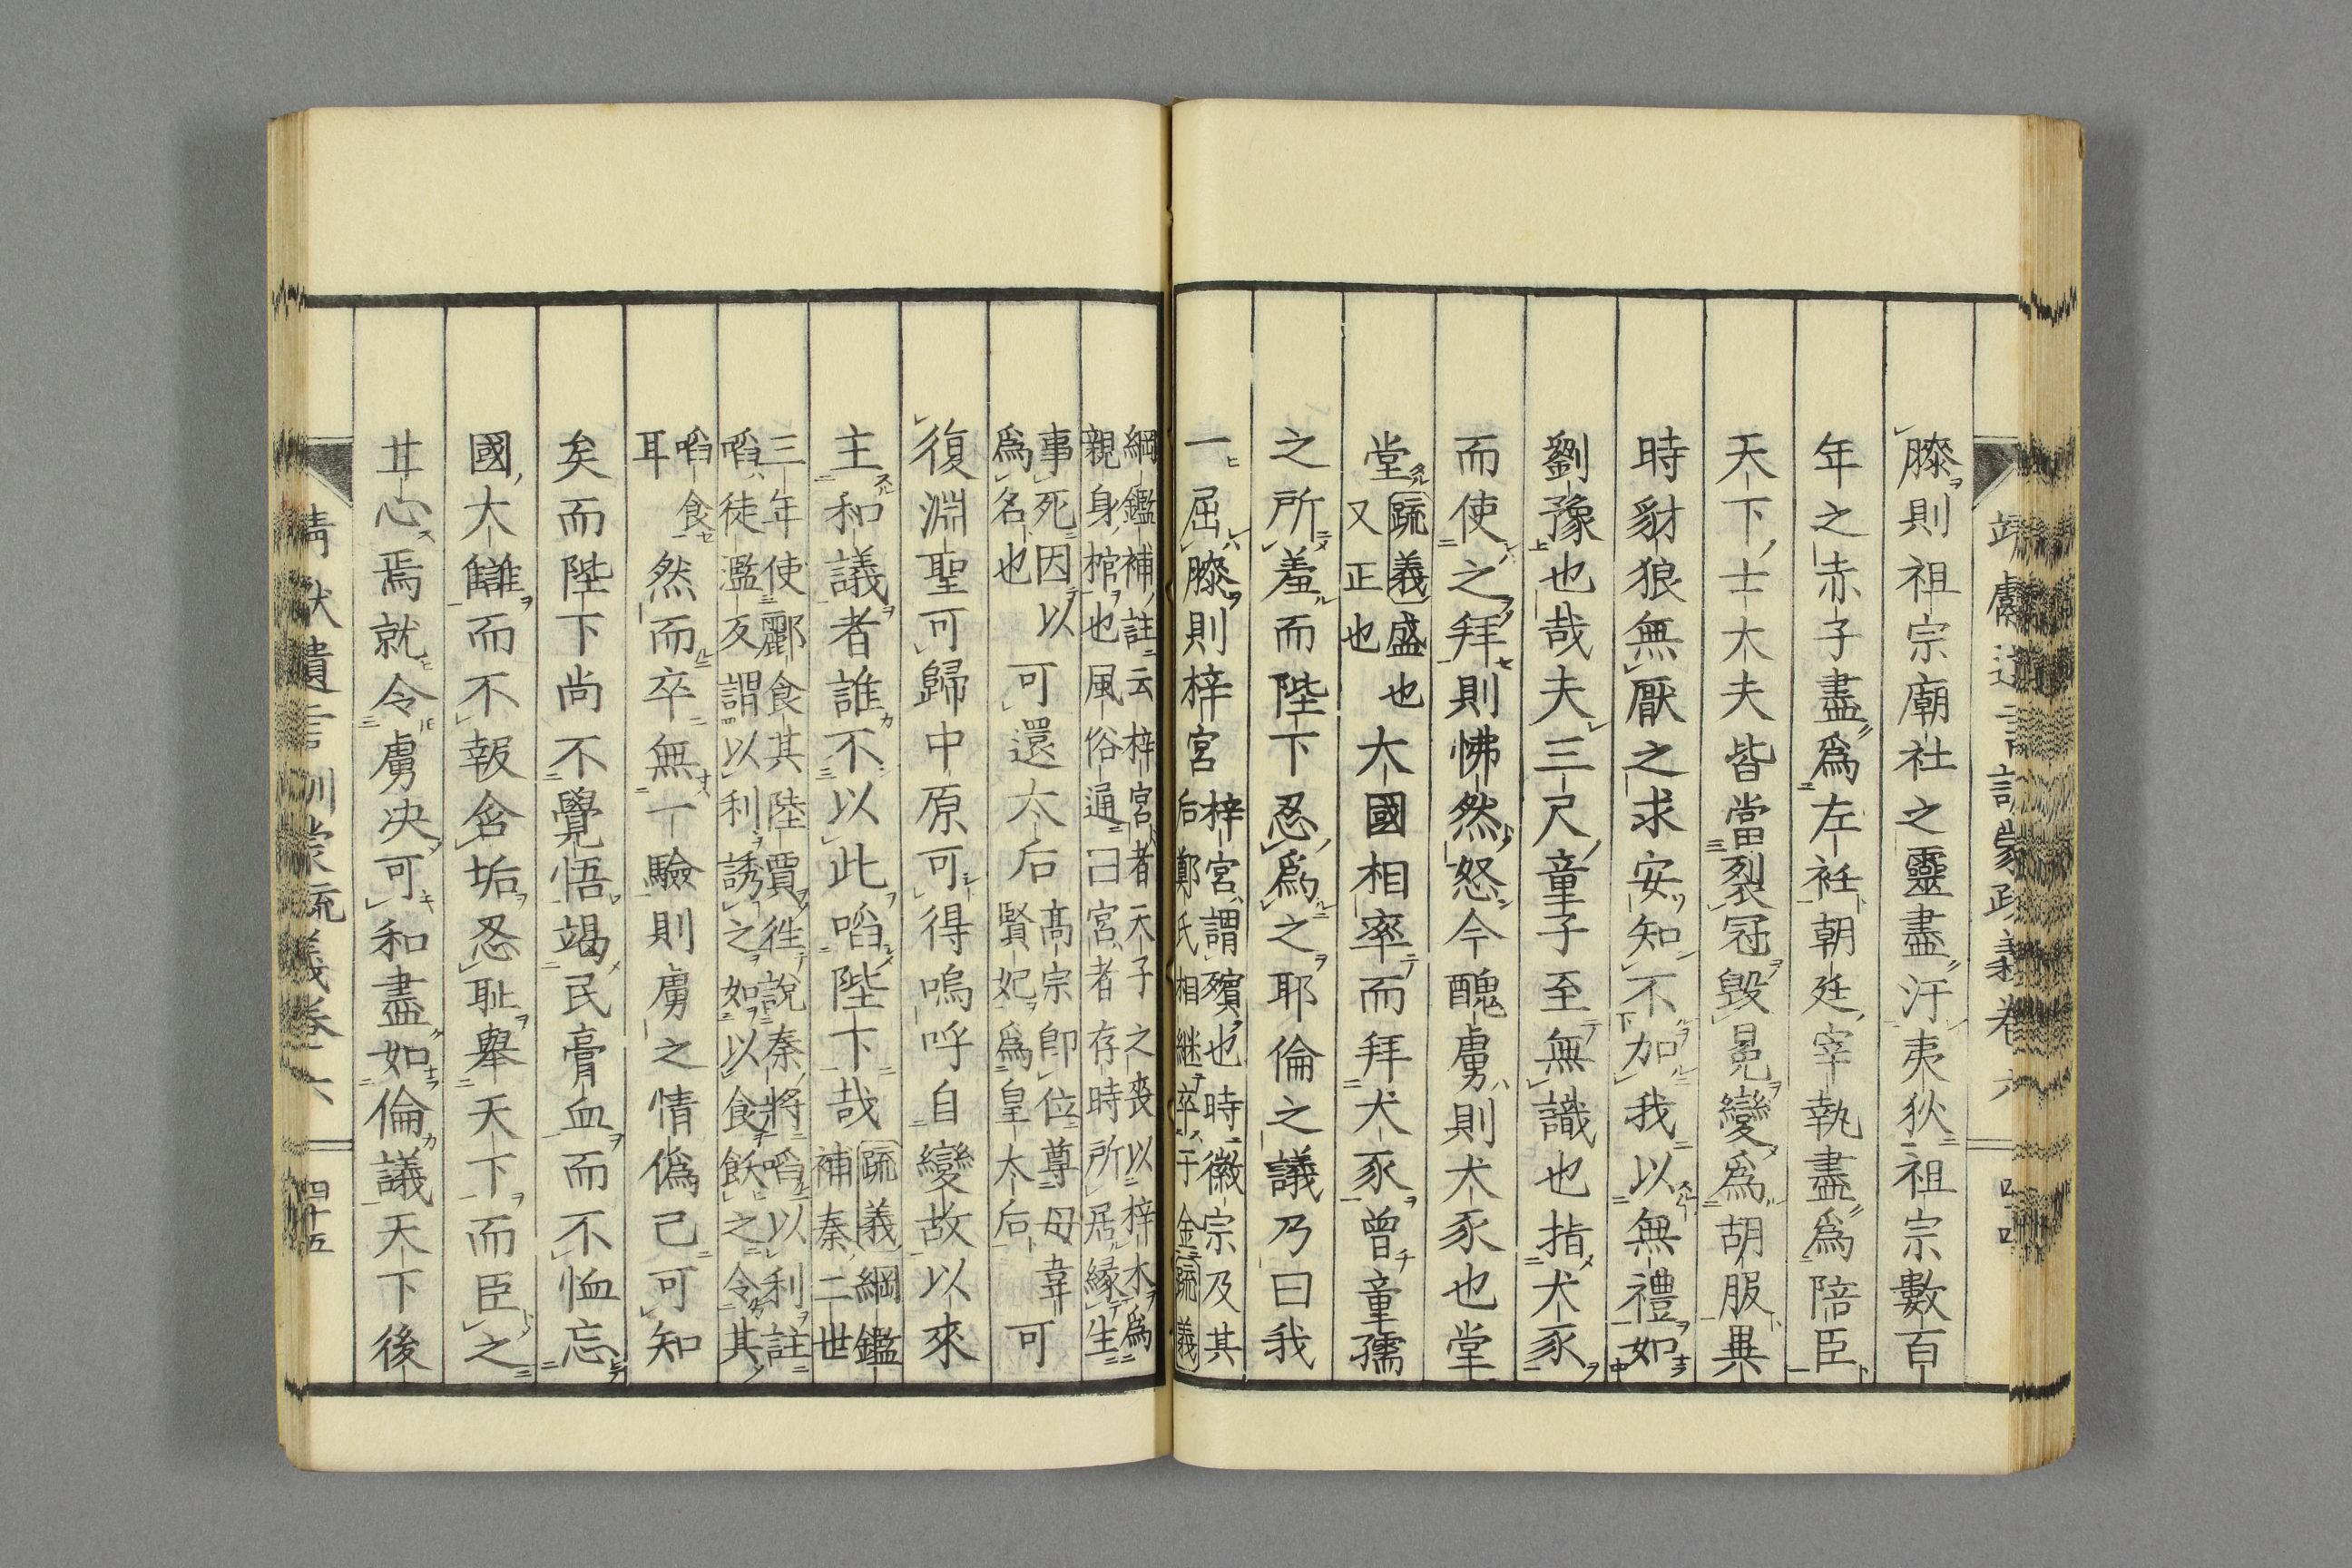 膝則祖宗廟社之靈盡汗夷狄祖宗數百
年之赤子盡爲左袵朝廷宰執盡爲陪臣
天下士大夫皆當裂冠毀冕變爲胡服異
時豺狼無厭之求安知不加我以無禮如
劉豫也哉夫三尺童子至無識也指犬豕
而使之拜則怫然怒今醜虜則犬豕也堂
堂 疏義 盛也
又正也
大國相率而拜犬豕曾童孺
之所羞而陛下忍爲之耶倫之議乃曰我
一屈膝則梓宮
梓宮謂殯也時徽宗及其
后鄭氏相継卒于金 疏義
綱鑑補註云梓宮者天子之喪以梓木爲
親身棺也風俗通曰宮者存時所居緣生
事死因以
爲名也
可還太后
髙宗卽位尊母韋
賢妃爲皇太后
可
復淵聖可歸中原可得嗚呼自變故以來
主和議者誰不以此啗陛下哉
疏義 綱鑑
補秦二世
三年使酈食其陸賈徃說秦將啗以利註
啗徒濫反謂以利誘之如以食飲之令其
啗食
耳
然而卒無一驗則虜之情僞已可知
矣而陛下尚不覺悟竭民膏血而不恤忘
國大讎而不報含垢忍耻擧天下而臣之
甘心焉就令虜决可和盡如倫議天下後
靖獻遺言訓蒙疏義卷六 四十四
靖獻遺言訓蒙疏義卷六 四十五